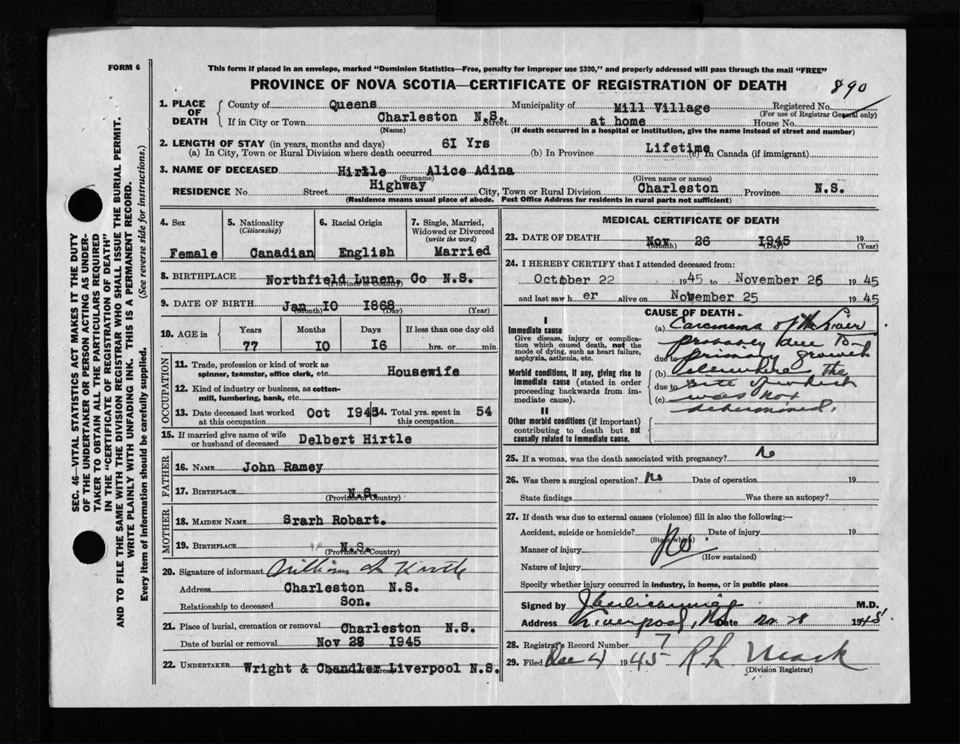 FORM 6
This form if placed in an envelope, marked "Dominion Statistics—Free, penalty for improper use $300," and properly addressed will pass through the mail "FREE"
PROVINCE OF NOVA SCOTIA—CERTIFICATE OF REGISTRATION OF DEATH
890
SEC. 46—VITAL STATISTICS ACT MAKES IT THE DUTY
OF THE UNDERTAKER OR PERSON ACTING AS UNDER-
TAKER TO OBTAIN ALL THE PARTICULARS REQUIRED
IN THE "CERTIFICATE OF REGISTRATION OF DEATH"
AND TO FILE THE SAME WITH THE DIVISION REGISTRAR WHO SHALL ISSUE THE BURIAL PERMIT.
WRITE PLAINLY WITH UNFADING INK. THIS IS A PERMANENT RECORD.
Every item of information should be carefully supplied. (See reverse side for instructions.)
1. PLACE OF DEATH
County of Queens Municipality of Mill Village Registered No.
(For use of Registrar General only)
If in City or Town Charleston N.S. Street at home House No.
(Name) (If death occurred in a hospital or institution, give the name instead of street and number)
2. LENGTH OF STAY (in years, months and days)
(a) In City, Town or Rural Division where death occurred 61 Yrs (b) In Province Lifetime (c) In Canada (if immigrant)
3. NAME OF DECEASED Hirtle Alice Adina
(Surname) (Given name or names)
RESIDENCE No Street Highway City, Town or Rural Division Charleston Province N.S.
(Residence means usual place of abode. Post Office Address for residents in rural parts not sufficient)
4. Sex
Female
5. Nationality
(Citizenship)
Canadian
6. Racial Origin
English
7. Single, Married,
Widowed or Divorced
(write the word)
Married
8. BIRTHPLACE Northfield Lunen, Co N.S.
(Province or Country)
9. DATE OF BIRTH Jan 10 1868
(Month) (Day) (Year)
10. AGE in
Years Months Days If less than one day old
77 10 16 hrs. or min.
OCCUPATION
11. Trade, profession or kind of work as
spinner, teamster, office clerk, etc. Housewife
12. Kind of industry or business, as cotton-
mill, lumbering, bank, etc.
13. Date deceased last worked
at this occupation Oct 1945
14. Total yrs. spent in
this occupation 54
15. If married give name of wife
or husband of deceased Delbert Hirtle
FATHER
16. NAME John Ramey
17. BIRTHPLACE N.S.
(Province or Country)
MOTHER
18. MAIDEN NAME Srarh Robart.
19. BIRTHPLACE N.S.
(Province or Country)
20. Signature of informant William Hirtle
Address Charleston N.S.
Relationship to deceased Son.
21. Place of burial, cremation or removal Charleston N.S.
Date of burial or removal Nov 28 1945
22. UNDERTAKER Wright & Chandler Liverpool N.S.
MEDICAL CERTIFICATE OF DEATH
23. DATE OF DEATH Nov 26 1945 19
(Month) (Day) (Year)
24. I HEREBY CERTIFY that I attended deceased from:
October 22 1945 to November 26 1945
and last saw her alive on November 25 1945
CAUSE OF DEATH.
I
Immediate cause
Give disease, injury or complica-
tion which caused death, not the
mode of dying, such as heart failure,
asphyxia, asthenia, etc.
Morbid conditions, if any, giving rise to
immediate cause (stated in order
proceeding backwards from im-
mediate cause).
II
Other morbid conditions (if important)
contributing to death but not
causally related to immediate cause.
(a) Carcinoma of the Liver
probably due to
due to primary growth
(b) elsewhere the
due to site of which
(c) was not
determined.
25. If a woman, was the death associated with pregnancy? No
26. Was there a surgical operation? No Date of operation 19
State findings Was there an autopsy?
27. If death was due to external causes (violence) fill in also the following:—
Accident, suicide or homicide? Date of injury 19
(State which)
Manner of injury No
(How sustained)
Nature of injury
Specify whether injury occurred in industry, in home, or in public place
Signed by M.D.
Address Liverpool, NS Date Nov 28 1945
28. Registrar's Record Number 7
29. Filed Dec 4 1945 R L Mack
(Division Registrar)